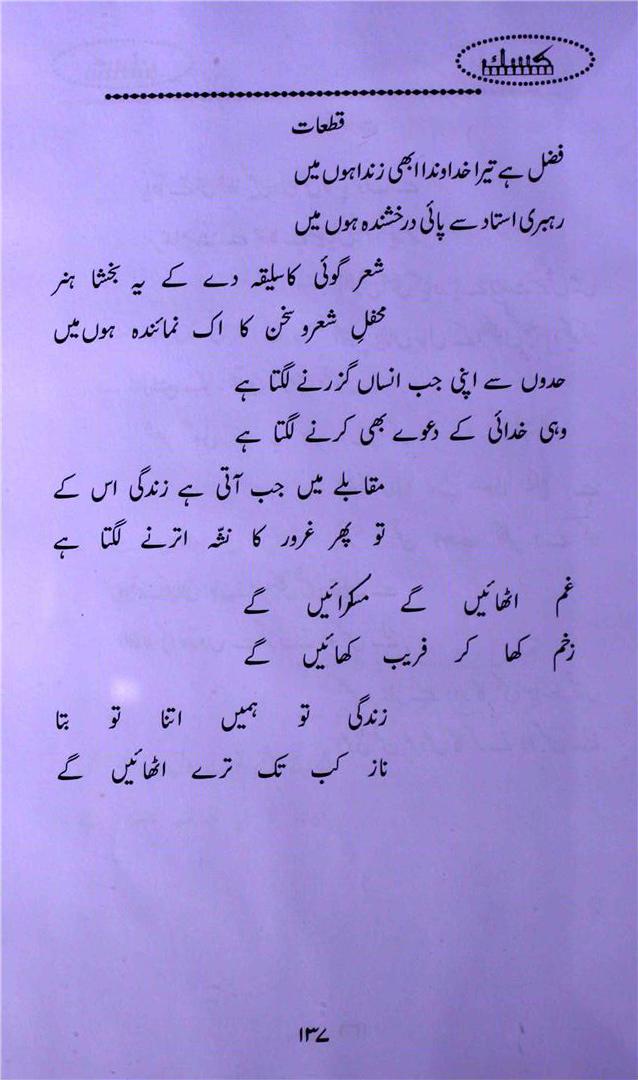 کسک
قطعات
فضل ہے تیرا خداوندا ابھی زندا ہوں میں
رہبری استاد سے پائی درخشندہ ہوں میں
شعر گوئی کا سلیقہ دے کے یہ بخشا ہنر
محفلِ شعر و سخن کا اک نمائندہ ہوں میں
حدوں سے اپنی جب انساں گزرنے لگتا ہے
وہی خدائی کے دعوے بھی کرنے لگتا ہے
مقابلے میں جب آتی ہے زندگی اس کے
تو پھر غرور کا نشّہ اترنے لگتا ہے
غم اٹھائیں گے مسکرائیں گے
زخم کھا کر فریب کھائیں گے
زندگی تو ہمیں اتنا تو بتا
ناز کب تک ترے اٹھائیں گے
۱۳۷